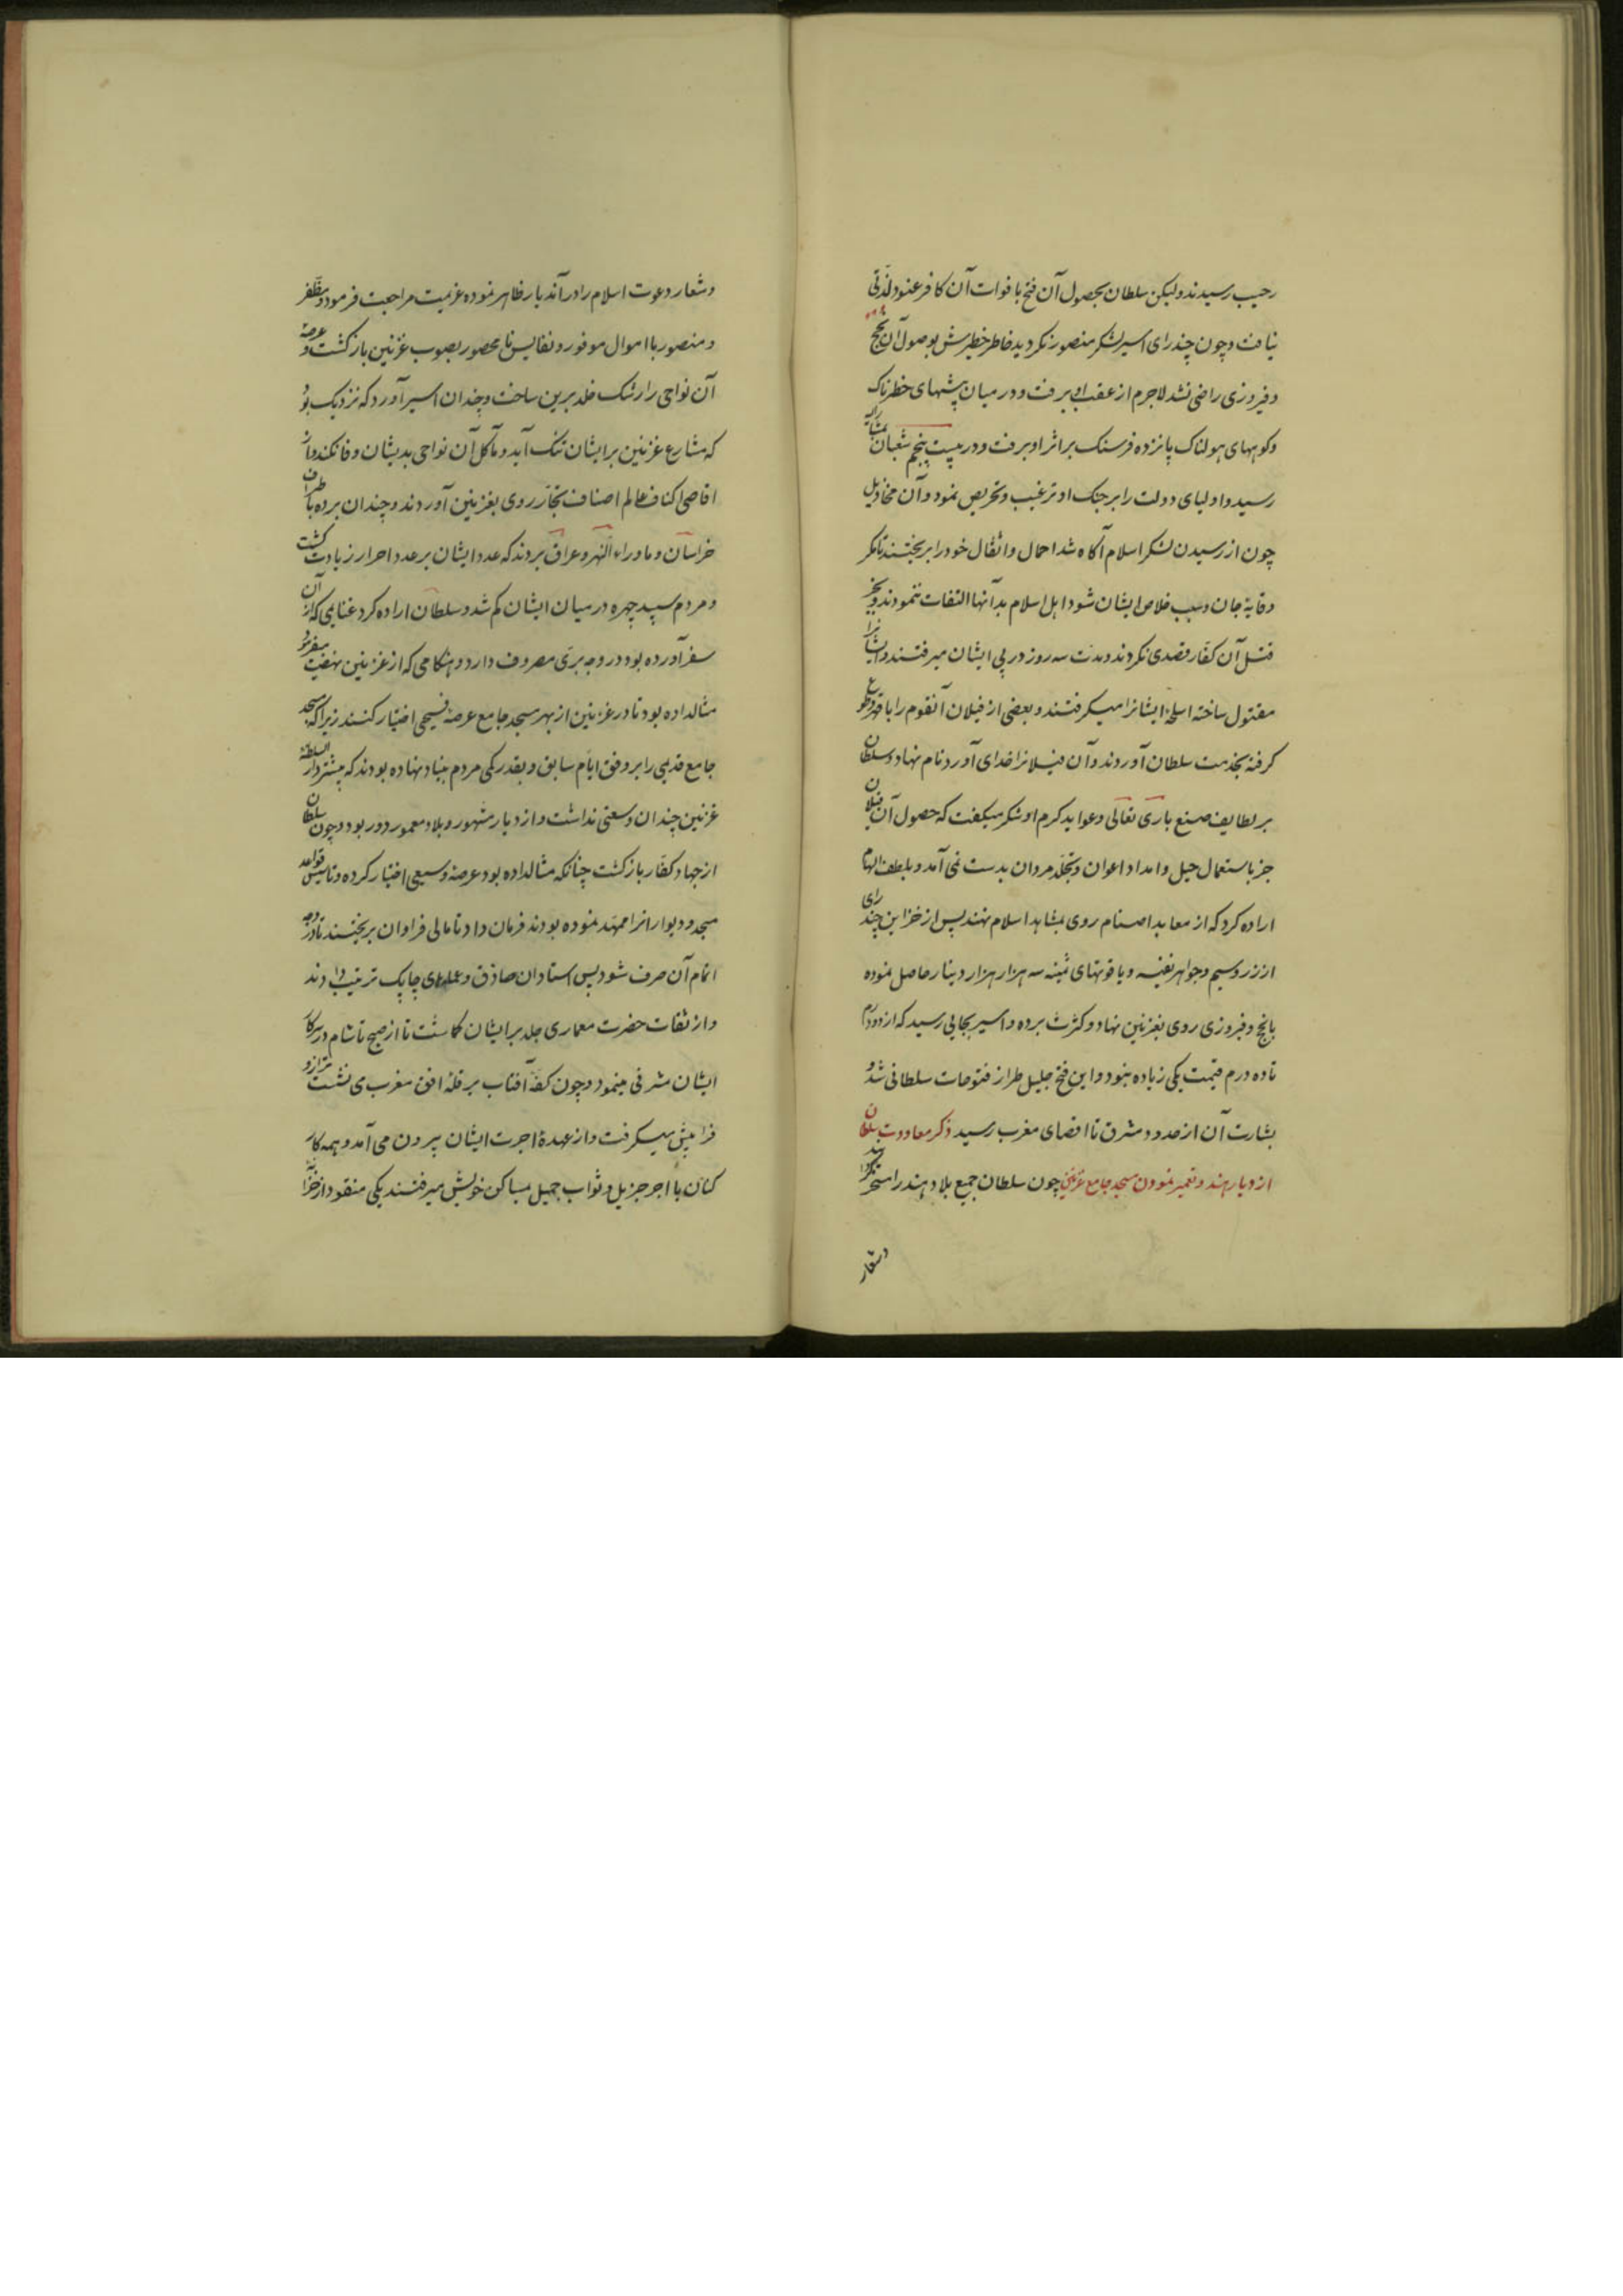 رحیب رسیدند ولیکن سلطان بحصول آن فتح با فوات آن کافر عنود لذتی
نیافت و چون چندرای اسیر لشکر منصور نکردید خاطر خطیرش بوصول آن نجح
و فیروزی راضی نشد لاجرم از عقب او برفت و در میان بیشهای خطرناک
وکوههای هولناک پانزده فرسنک براثر او برفت و در بیست پنجم شعبان
رسید و اولیای دولت را بر جنک او ترغیب و تحریص نمود و آن مخاذیل
چون از رسیدن لشکر اسلام آکاه شد احمال و اثقال خود را بریختند تا مکر
وقایه جان و سبب خلاص ایشان شود اهل اسلام بدآنها التفات ننمودند و بجز
قتل آن کفار قصدی نکردند و مدت سه روز در پی ایشان میرفتند و ایشانرا
مقتول ساخته اسلحه ایشانرا میکرفتند و بعضی از فیلان آنقوم را با قهر و طوع
کرفته بخدمت سلطان آوردند و آن فیلانرا خدای آورد نام نهاد و سلطان
بر لطایف صنع باری تعالی و عواید کرم او شکر میکفت که حصول آن فیلان
جز باستعمال حیل و امداد اعوان و تجلد مردان بدست نمی آمد و بلطف الهام
اراده کرد که از معابد اصنام روی بمشاهد اسلام نهند پس از خزاین چندرای
از زر و سیم و جواهر نفیسه و یاقوتهای ثمینه سه هزار هزار دینار حاصل نموده
بانجح و فیروزی روی بغزنین نهاد و کثرت برده و اسیر بجایی رسید که از دو درم
تا ده درم قیمت یکی زیاده نبود و این فتح جلیل طراز فتوحات سلطانی شد و
بشارت آن از حدود مشرق تا اقصای مغرب رسید ذکر معاودت سلطان
از دیار هند و تعمیر نمودن مسجد جامع غزنین چون سلطان جمیع بلاد هند را مسخر کردانید
وشعار
وشعار دعوت اسلام را در آندیار ظاهر نموده عزیمت مراجعت فرمود و مظفر
و منصور با اموال موفور و نفایس نامحصور بصوب غزنین بازکشت و عرصه
آن نواحی را رشک خلد برین ساخت و چندان اسیر آورد که نزدیک بود
که مشارع غزنین برایشان تنک آید و مآکل آن نواحی بدیشان وفا نکند و از
اقاصی اکناف عالم اصناف تجار روی بغزنین آوردند و چندان برده باطراف
خراسان و ماوراء النهر و عراق بردند که عدد ایشان بر عدد احرار زیادت کشت
و مردم سپید چهره در میان ایشان کم شد و سلطان اراده کرد غنایمی که از آن
سفر آورده بود در وجه برّی مصروف دارد و هنکامی که از غزنین نهضت میفرمود
مثال داده بود تا در غزنین از بهر مسجد جامع عرصه فسیحی اختیار کنند زیرا که مسجد
جامع قدیمی را بر وفق ایام سابق و بقدر کمی مردم بنیاد نهاده بودند که پیشتر دار السلطنه
غزنین چندان وسعتی نداشت و از دیار مشهور و بلاد معمور دور بود و چون سلطان
از جهاد کفار بازکشت چنانکه مثال داده بود عرصه وسیعی اختیار کرده و تاسیس قواعد
مسجد و دیوار انرا ممهد نموده بودند فرمان داد تا مالی فراوان بریختند تا در وجه
اتمام آن صرف شود پس استادان حاذق و عملهای چابک ترتیب دادند
و از ثقات حضرت معماری جلد بر ایشان کماشت تا از صبح تا شام در سر کار
ایشان مشرفی مینمود و چون کفه آفتاب بر قله افق مغرب می نشست ترازو
فرا پیش میکرفت و از عهده اجرت ایشان بیرون می آمد و همه کار
کنان با اجر جزیل و ثواب جمیل بمساکن خویش میرفتند یکی منقود از خزانه